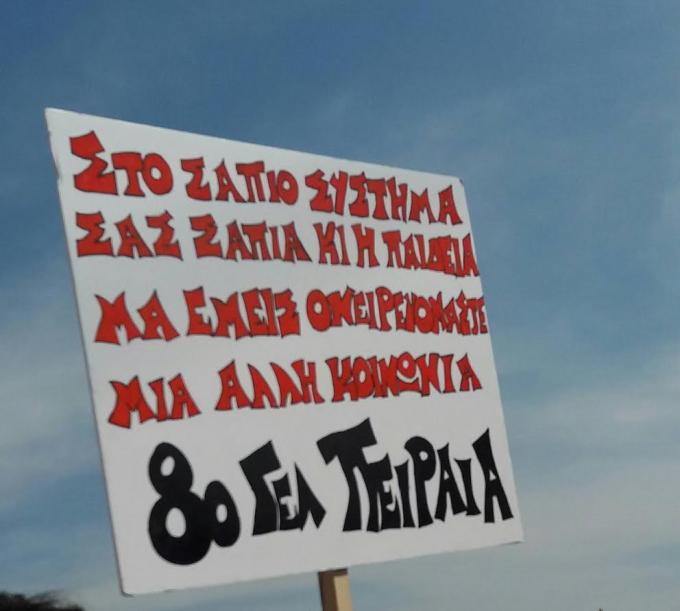 ΣΤΟ ΣΑΠΙΟ ΣΥΣΤΗΜΑ
ΣΑΣ ΣΑΠΙΑ ΚΙ Η ΠΑΙΔΕΙΑ
ΜΑ ΕΜΕΙΣ ΟΝΕΙΡΕΥΟΜΑΣΤΕ
ΜΙΑ ΑΛΛΗ ΚΟΙΝΩΝΙΑ
8ο ΓΕΛ ΠΕΙΡΑΙΑ